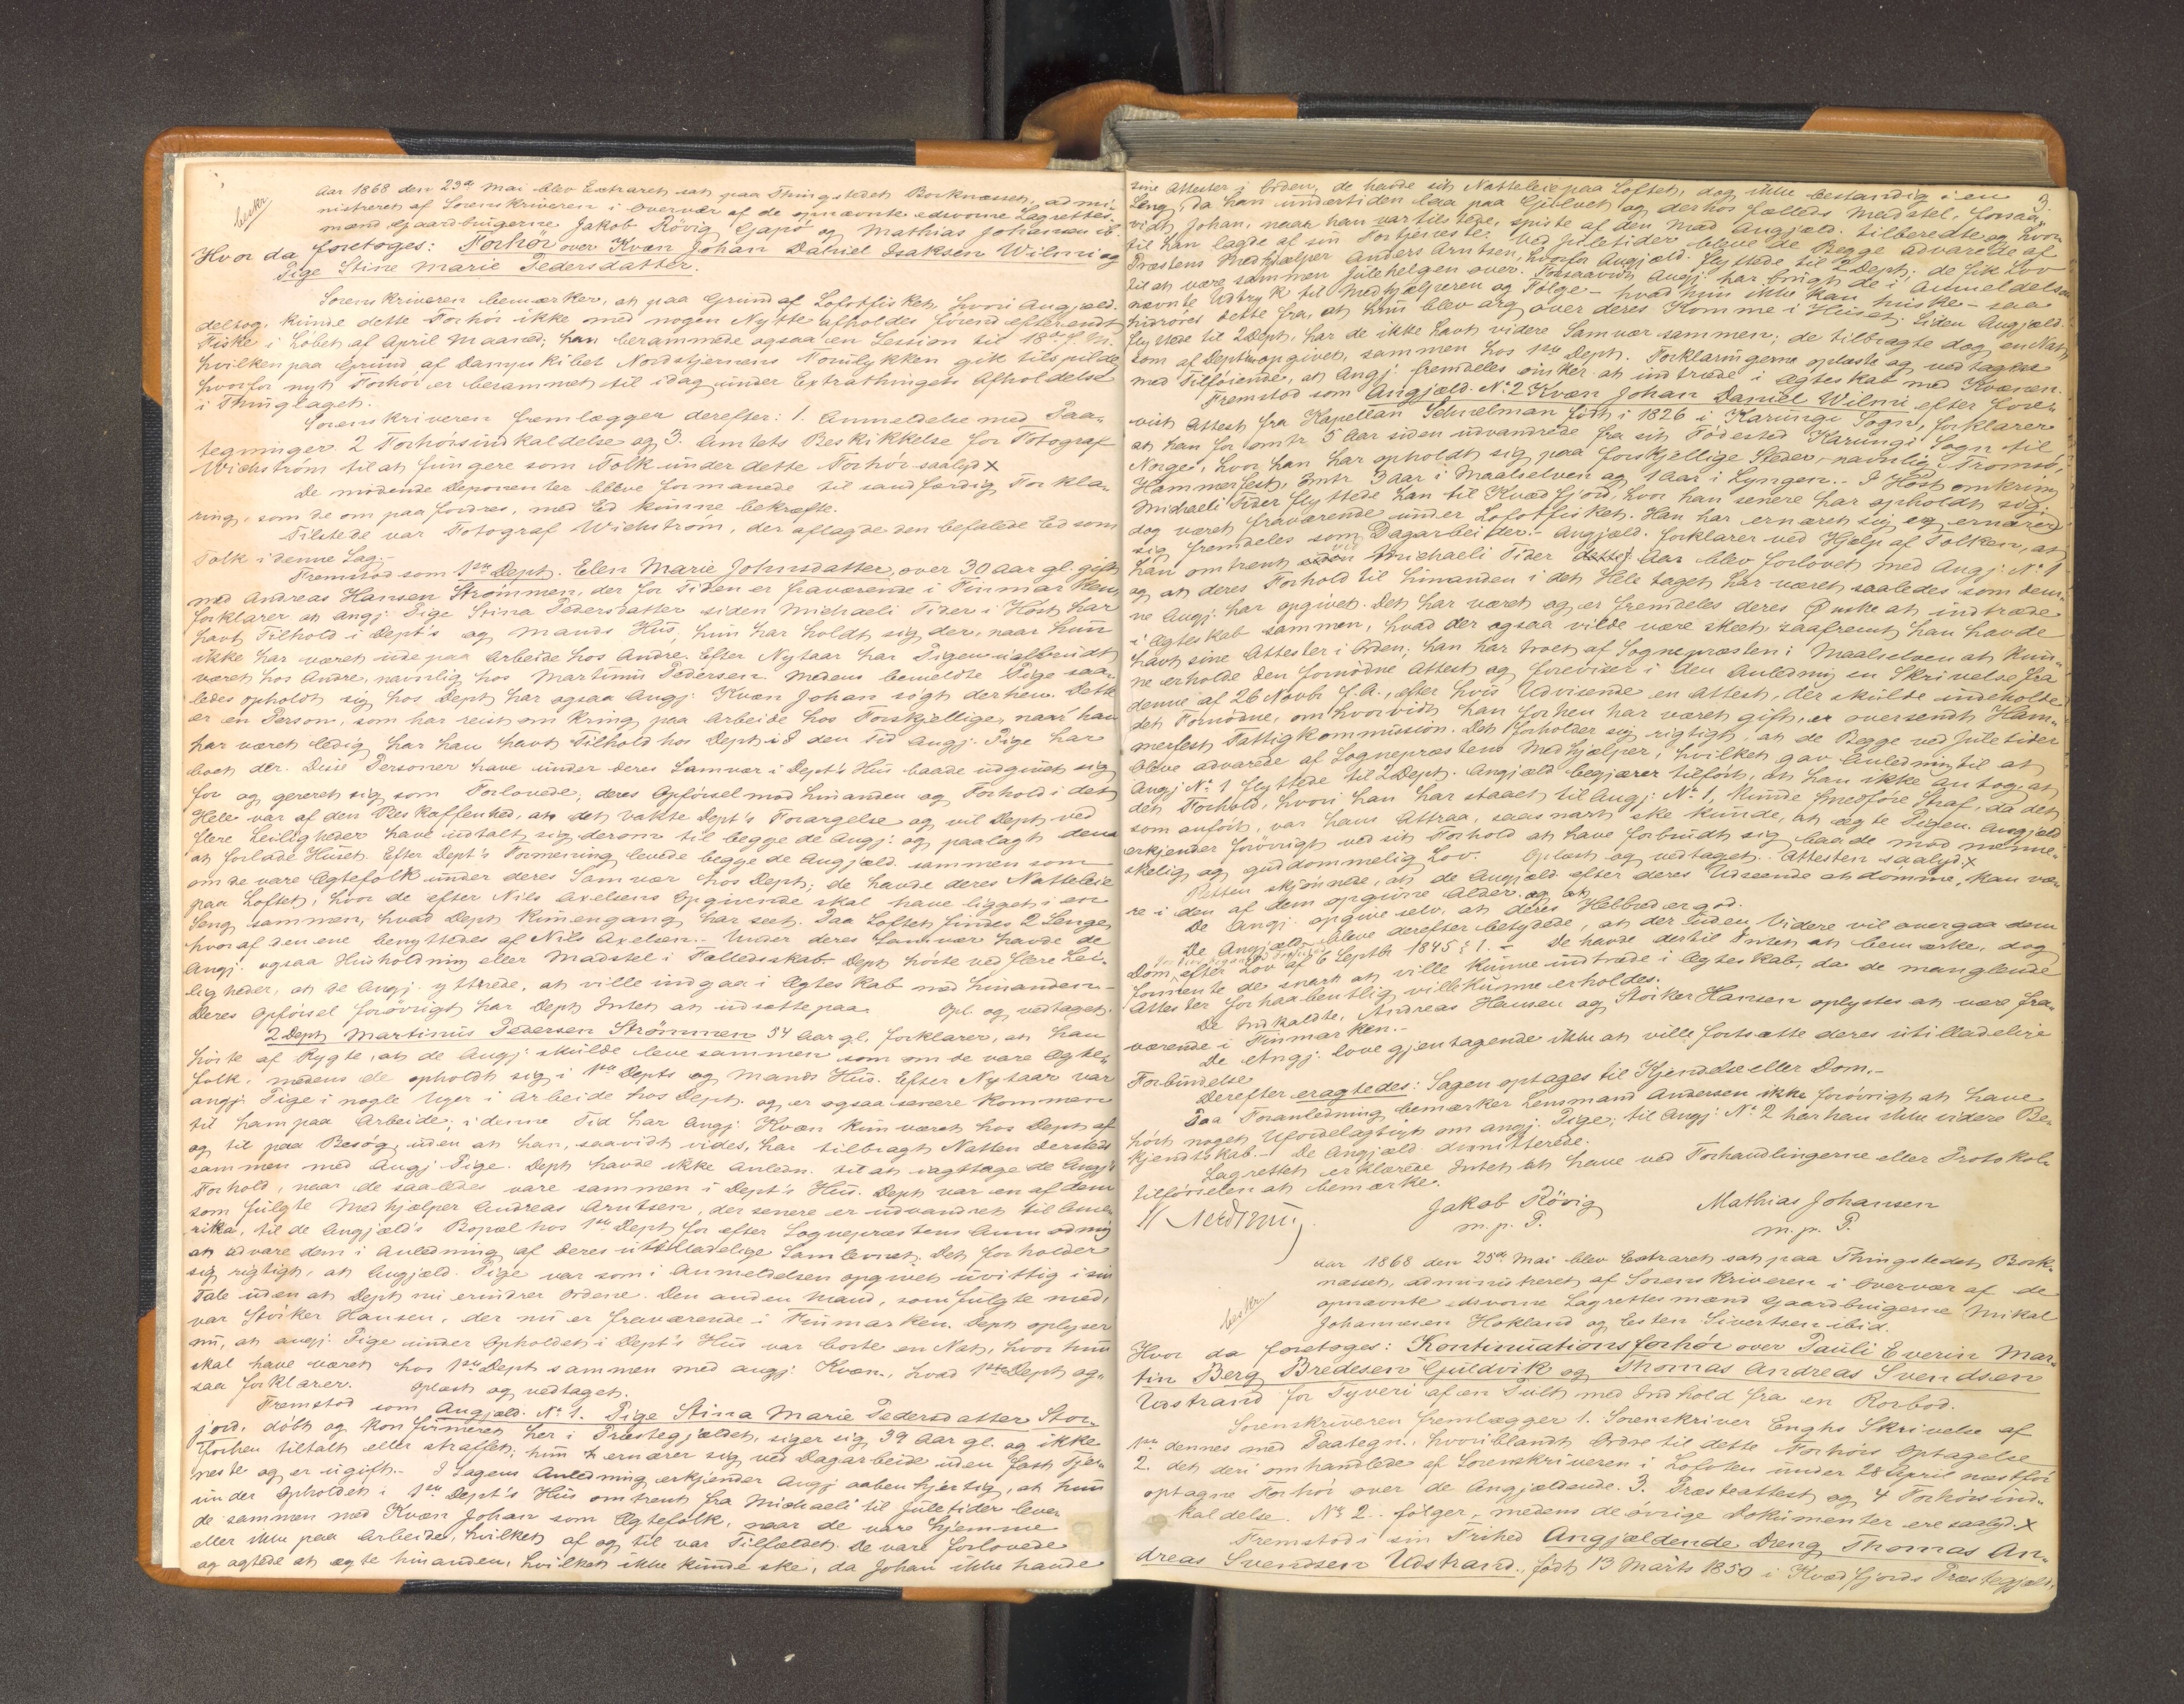 beskr.
Aar 1868 den 23de Mai blev Extraret sat paa Thingstedet Borknæsset, admi-
nistreret af Sorenskriveren i Overvær af de opnævnte edsvorne Lagrettes-
mænd Gaardbrugerne Jakob Rövig Gapö og Mathias Johansen ib.
Hvor da foretoges: Forhör over Kvæn Johan Daniel Isaksen Wilmi og
Pige Stine Marie Pedersdatter.
Sorenskriveren bemærker, at paa Grund af Lofotfisket, hvori Angjæld.
deltog, kunde dette Forhör ikke med nogen Nytte afholdes förend efter endt
Fiske i Löbet af April Maaned; han berammede ogsaa en Session til 18de f. M.
hvilken paa Grund af Dampskibet Nordstjernens Tomulykken gik tilspilde
hvorfor nyt Forhör er berammet til idag under Extrathingets Afholdelse
i Thinglaget.
Sorenskriveren fremlægger derefter: 1. Anmeldelse med Paa-
tegninger 2 Forhörsindkaldelse og 3. Amtets Beskikkelse for Fotograf
Wickström til at fungere som Tolk under dette Forhör saalyd X
De mödende Deponenter bleve formanede til sandfærdig Forkla-
ring, som de om paafordres, med Ed kunne bekræfte.
Tilstede var Fotograf Wickström, der aflagde den befalede Ed som
Tolk i denne Sag.-
Fremstod som 1ste Dept. Elen Marie Johnsdatter, over 30 Aar gl. gift
med Andreas Hansen Strömmen, der for Tiden er fraværende i Finmarken
forklarer at angj. Pige Stina Pedersdatter siden Michaeli Tider i Höst har
havt Tilhold i Dept's og Mands Hus, hun har holdt sig der, naar hun
ikke har været ude paa Arbeide hos Andre. Efter Nytaar har Pigen uafbrudt
været hos Andre, navnlig hos Martinus Pedersen. Medens bemeldte Pige saa-
ledes opholdt sig hos Dept har ogsaa Angj. Kvæn Johan sögt derhen. Dette
er en Person, som har reist om kring paa Arbeide hos Forskjellige, naar han
har været ledig har han havt Tilhold hos Dept i den Tid Angj. Pige har
boet der. Disse Personer have under deres Samvær i Dept's Hus baade udgivet sig
for og gereret sig som Forlovede, deres Opförsel mod hinanden og Forhold i det
Hele var af den Beskaffenhed, at det vakte Dept's Forargelse og vil Dept ved
flere Leiligheder have udtalt sig derom til begge de Angj. og paalagt dem
at forlade Huset. Efter Dept's Formening levede begge de Angjæld. sammen som
om de vare Ægtefolk under deres Samvær hos Dept; de havde deres Natteleie
paa Loftet, hvor de efter Nils Axelsens Opgivende skal have ligget i en
Seng sammen, hvad Dept kun engang har seet. Paa Loftet findes 2 Senge,
hvoraf den ene benyttedes af Nils Axelsen.. Under deres Samvær havde de
Angj. ogsaa Husholdning eller Madstel i Fællesskab. Dept hörte ved flere Lei-
ligheder, at de Angj. yttrede, at ville indgaa i Ægteskab med hinanden.-
Deres Opförsel forövrigt har Dept Intet at udsætte paa. Opl. og vedtaget.
2 Dept Martinus Pedersen Strömmen 54 Aar gl. forklarer, at han
hörte af Rygte, at de Angj. skulde leve sammen som om de vare Ægte-
folk, medens de opholdt sig i 1ste Depts og Mands Hus. Efter Nytaar var
angj. Pige i nogle Uger i Arbeide hos Dept. og er ogsaa senere kommen
til ham paa Arbeide; i denne Tid har Angj. Kvæn kun været hos Dept af
og til paa Besög, uden at han, saavidt vides, har tilbragt Natten dersteds
sammen med Angj Pige. Dept havde ikke Anledn. til at iagttage de Angj's
Forhold, naar de saaledes vare sammen i Dept's Hus. Dept var en af dem
som fulgte Medhjælper Andreas Arntsen, der senere er udvandret til Ame-
rika, til de Angjæld's Bopæl hos 1ste Dept for efter Sognepræstens Anmodning
at advare dem i Anledning af deres utilladelige Samlevnet. Det forholder
sig rigtigt, at Angjæld. Pige var som i Anmeldelsen opgivet uvittig i sin
Tale uden at Dept nu erindrer Ordene. Den anden Mand, som fulgte med,
var Störker Hansen, der nu er fraværende i Finmarken. Dept oplyser
nu, at angj. Pige under Opholdet i Dept's Hus var borte en Nat, hvor hun
skal have været hos 1ste Dept sammen med angj. Kvæn, hvad 1ste Dept og-
saa forklarer. Oplæst og vedtaget.
Fremstod som Angjæld. No 1. Pige Stina Marie Pedersdatter Stor-
jord, döbt og konfirmeret her i Præstegjældet, siger sig 39 Aar gl. og ikke
forhen tiltalt eller straffet; hun ernærer sig ved Dagarbeide uden fast Tje-
neste og er ugift.- I Sagens Anledning erkjender Angj aabenhjertig, at hun
under Opholdet i 1ste Dept's Hus omtrent fra Michaeli til Juletider leve-
de sammen med Kvæn Johan som Ægtefolk, naar de vare hjemme
eller ikke paa Arbeide, hvilket af og til var Tilfældet. De vare forlovede
og agtede at ægte hinanden, hvilket ikke kunde ske, da Johan ikke havde
3
sine Attester i Orden, de havde sit Natteleie paa Loftet, dog ikke bestandig i en
Seng, da han undertiden laa paa Gjelvet og derhos fælleds Madstel, forsaa-
vidt Johan, naar han var tilstede, spiste af den Mad Angjæld. tilberedte og hvor-
til han lagde af sin Fortjeneste. Ved juletider bleve de Begge advarede af
Præstens Medhjælper Anders Arntsen, hvorfor Angjæld. flyttede til 2 Dept; de fik Lov
til at være sammen Julehelgen over. Forsaavidt Angj. har brugt de i Anmeldelsen
nævnte Udtryk til Medhjælperen og Fölge - hvad hun ikke kan huske - saa
hidröres dette fra, at hun blev arg over deres Komme i Huset; siden Angjæld.
flyttede til 2 Dept, har de ikke havt videre Samvær sammen; de tilbragte dog en Nat,
som af Dept opgivet, sammen hos 1ste Dept. Forklaringerne oplæste og vedtaget
med Tilföiende, at Angj. fremdeles önsker at indtræde i Ægteskab med Kvænen.
Fremstod som Angjæld. No 2 Kvæn Johan Daniel Wilmi efter fore-
vist Attest fra Kapellan Schnelman födt i 1826 i Karungi Sogn, forklarer
at han for omtr 5 Aar siden udvandrede fra sit Födested Karungi Sogn til
Norge, hvor han har opholdt sig paa forskjellige Steder, navnlig i Tromsö,
Hammerfest, omtr 3 Aar i Maalselven og 1 Aar i Lyngen.- I Höst omkring
Michaeli Tider flyttede han til Kvædfjord, hvor han senere har opholdt sig,
dog været fraværende under Lofotfisket. Han har ernæret sig og ernærer
sig fremdeles som Dagarbeider.- Angjæld. forklarer ved Hjælp af Tolken, at
han omtrent ved Michaeli Tider f. Aar blev forlovet med Angj. No 1
og at deres Forhold til hinanden i det Hele taget har været saaledes som den-
ne Angj. har opgivet. Det har været og er fremdeles deres Ønske at indtræde
i Ægteskab sammen, hvad der ogsaa vilde være skeet, saafremt han havde
havt sine Attester i Orden; han har troet af Sognepræsten i Maalselven at kun-
ne erholde den fornödne Attest og foreviser i den Anledning en Skrivelse fra
denne af 26 Novb f. A., efter hvis Udvisende en Attest, der skulde indeholde
det Fornödne, om hvorvidt han forhen har været gift, er oversendt Ham-
merfest Fattigkommission. Det forholder sig rigtigt, at de Begge ved Juletider
bleve advarede af Sognepræstens Medhjælper, hvilket gav Anledning til at
Angj No 1 flyttede til 2 Dept. Angjæld begjærer tilfört, at han ikke antog, at
det Forhold, hvori han har staaet til Angj. No 1, kunde medföre Straf, da det
som anfört, var hans Attraa, saasnart ske kunde, at ægte Pigen. Angjæld
erkjender forövrigt ved sit Forhold at have forbrudt sig baade mod menne-
skelig og guddommelig Lov. Oplæst og vedtaget. Attesten saalyd. X
Retten skjönnede, at de Angjæld efter deres Udseende at dömme, kan væ-
re i den af dem opgivne Alder.
De Angj. opgive selv, at deres Helbred er god.
De Angjæld. bleve derefter betydede, at der uden Videre vil overgaa dem
Dom efter Lov af 6 Septbr 1845 § 1.- De havde dertil Intet at bemærke, dog
formente de snart at ville kunne indtræde i Ægteskab, da de manglende
Attester forhaabentlig ville kunne erholdes.
De Indkaldte, Andreas Hansen og Störker Hansen oplystes at være fra-
værende i Finmarken.-
De Angj. love gjentagende ikke at ville fortsætte deres utilladelige
Forbindelse
Derefter eragtedes: Sagen optages til Kjendelse eller Dom.-
Paa Foranledning bemærker Lensmand Andersen ikke forövrigt at have
hört noget Ufordelagtigt om angj. Pige; til Angj. No 2 har han ikke videre Be-
kjendtskab.- De Angjæld dimitterede.
Lagrettet erklærede Intet at have ved Forhandlingerne eller Protokol-
tilförselen at bemærke.
Jakob Rövig Mathias Johansen
m. p. P. m. p. P.
beskr
Aar 1868 den 25de Mai blev Extraret sat paa Thingstedet Bork-
næsset, administreret af Sorenskriveren i Overvær af de
opnævnte edsvorne Lagrettesmænd Gaardbrugerne Mikal
Johannesen Hokland og Esten Sivertsen ibid.
Hvor da foretoges: Kontinuationsforhör over Pauli Everin Mar-
tin Berg Bredesen Guldvik og Thomas Andreas Svendsen
Udstrand for Tyveri af en Pult med Indhold fra en Rorbod.
Sorenskriveren fremlægger 1. Sorenskriver Enghs Skrivelse af
1ste dennes med Paategn., hvoriblandt Ordre til dette Forhörs Optagelse
2. det deri omhandlede af Sorenskriveren i Lofoten under 28 April næstfor
optagne Forhör over de Angjældende. 3. Præsteattest og 4 Forhörsind-
kaldelse. No 2.. fölger, medens de övrige Dokumenter ere saalyd. X
Fremstod i sin Frihed Angjældende Dreng Thomas An-
dreas Svendsen Udstrand., födt 13 Marts 1850 i Kvædfjords Præstegjæld,